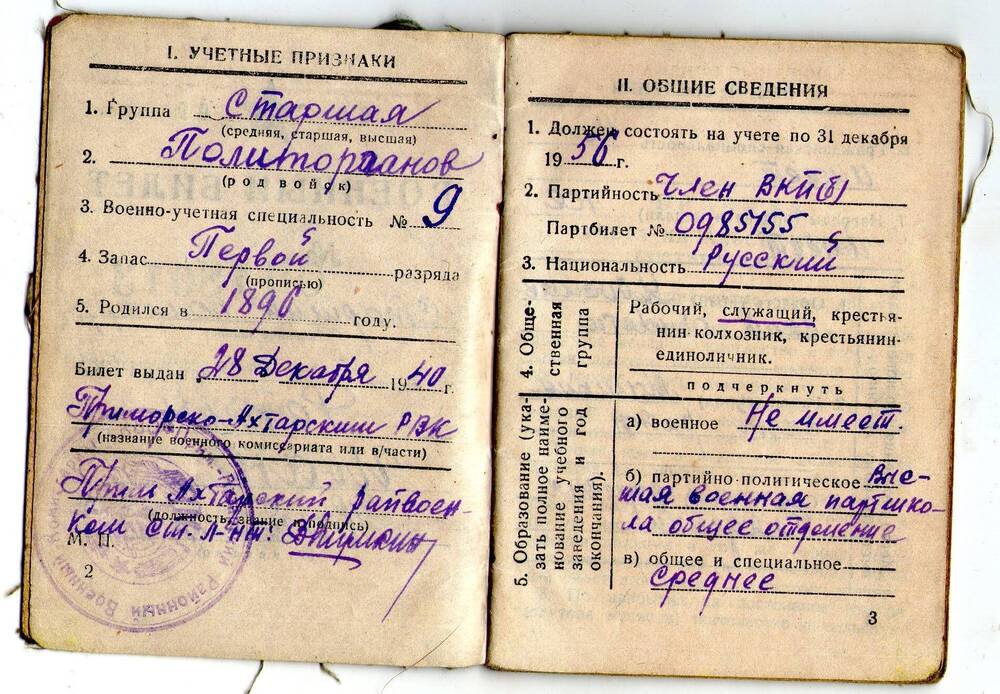 I. УЧЕТНЫЕ ПРИЗНАКИ
1. Группа Старшая
(средняя, старшая, высшая)
2. Политорганов
(род войск)
3. Военно-учетная специальность № 9
4. Запас Первой разряда
(прописью)
5. Родился в 1896 году.
Билет выдан 28 Декабря 1940 г.
Приморско-Ахтарским РВК
(название военного комиссариата или в/части)
Прим Ахтарский райвоен-
(должность, звание и подпись)
ком Ст. л-нт:
М. П.
Районный Военный
2
II. ОБЩИЕ СВЕДЕНИЯ
1. Должен состоять на учете по 31 декабря
1956 г.
2. Партийность Член ВКП(б)
Партбилет № 0985155
3. Национальность Русский
4. Обще-
ственная
группа
Рабочий, служащий, крестья-
нин-колхозник, крестьянин-
единоличник.
подчеркнуть
5. Образование (ука-
зать полное наиме-
нование учебного
заведения и год
окончания).
а) военное Не имеет.
б) партийно-политическое Выс-
шая военная партшко-
ла общее отделение
в) общее и специальное
среднее
3